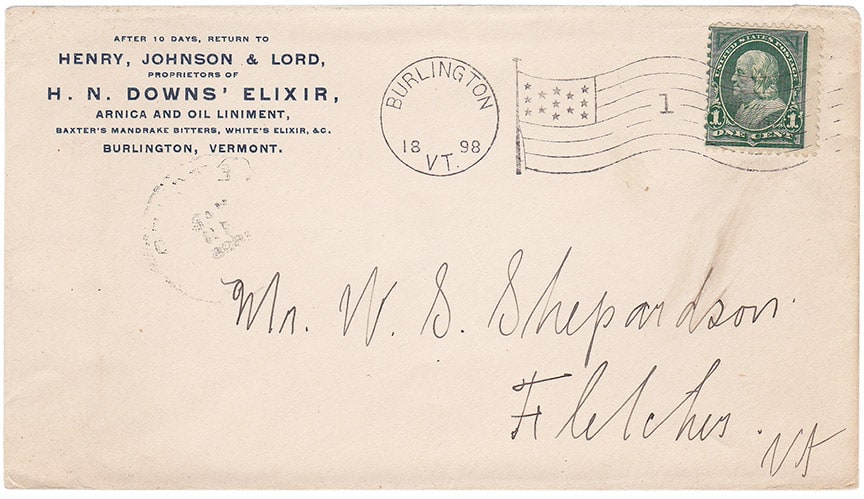 AFTER 10 DAYS, RETURN TO
HENRY, JOHNSON & LORD,
PROPRIETORS OF
H. N. DOWNS' ELIXIR,
ARNICA AND OIL LINIMENT,
BAXTER'S MANDRAKE BITTERS, WHITE'S ELIXIR, &C.
BURLINGTON, VERMONT.
BURLINGTON
18 98
VT.
1
UNITED STATES POSTAGE
1 1
ONE CENT
Mr. W. S. Shepardson.
Fletcher.
VT